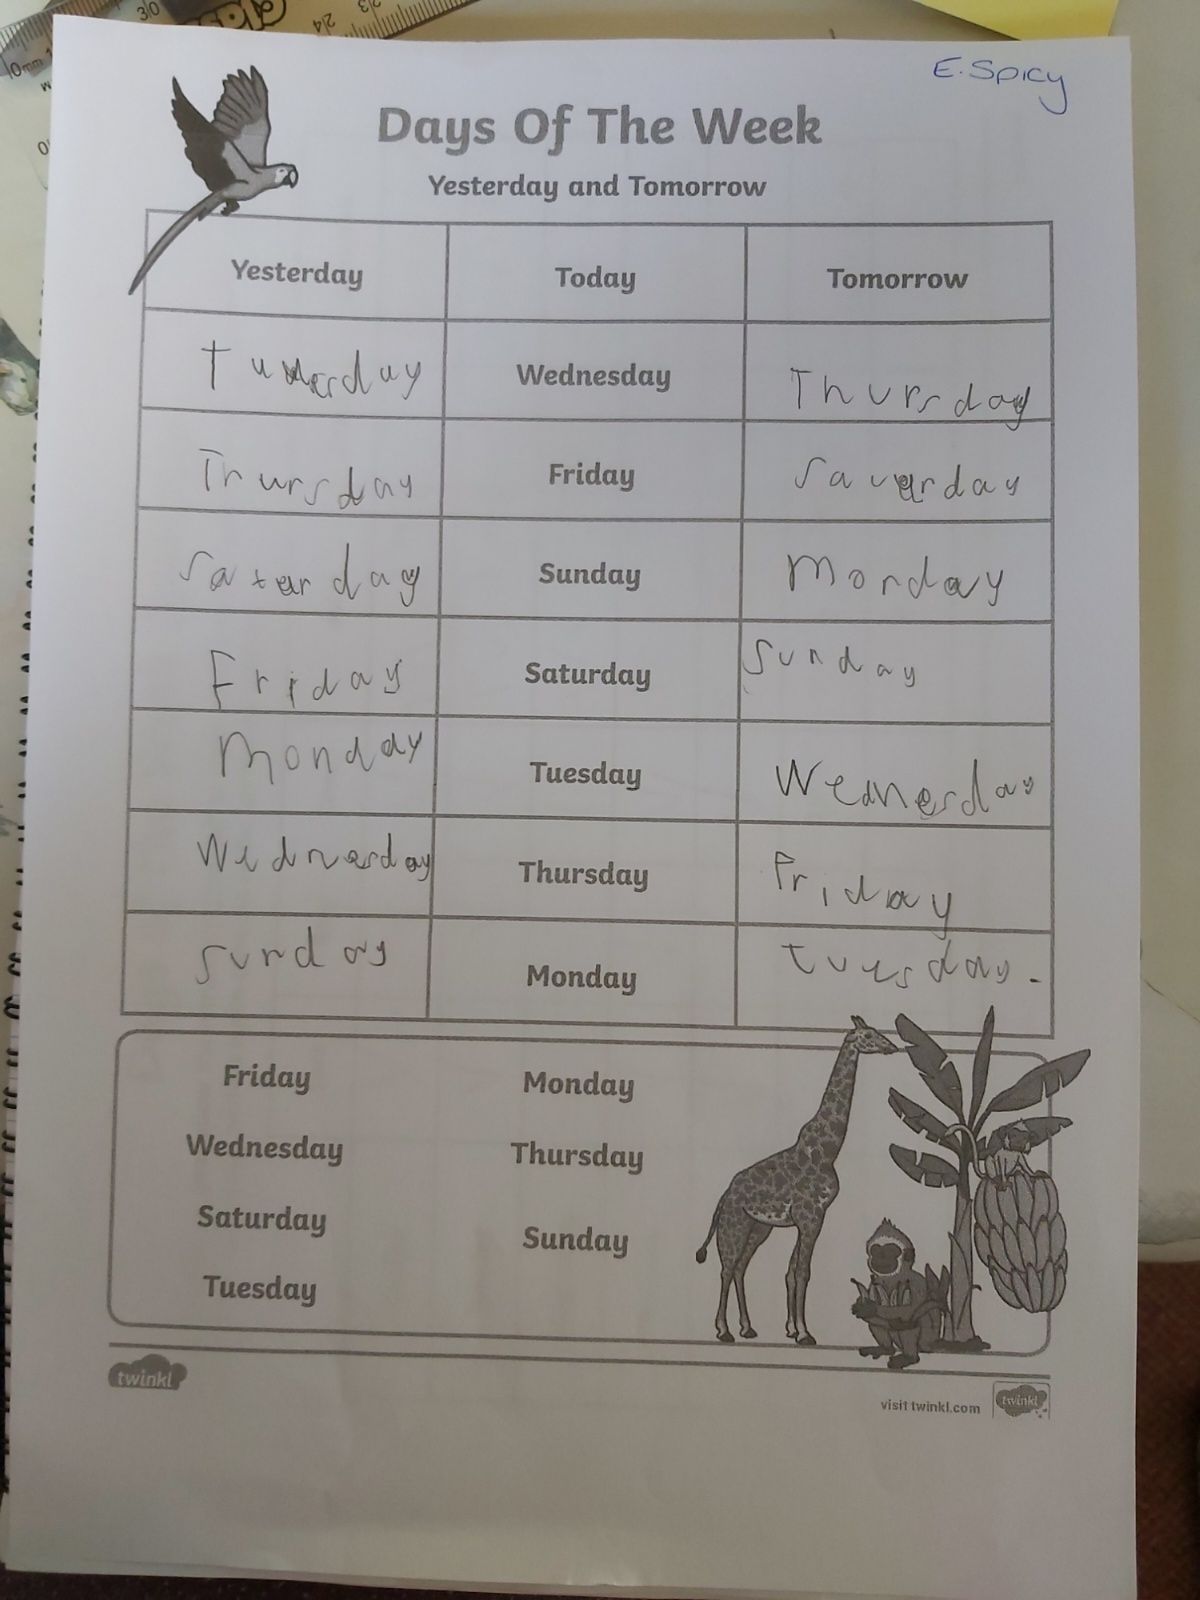 E. Spicy
Days Of The Week
Yesterday and Tomorrow
Yesterday Today Tomorrow
Wednesday Thursday
Thursday Friday
Saterday Sunday Monday
Friday Saturday Sunday
Monday Tuesday Wednesday
Wednesday Thursday Friday
Sunday Monday tuesday.
Friday Monday
Wednesday Thursday
Saturday Sunday
Tuesday
twinkl
visit twinkl.com twinkl